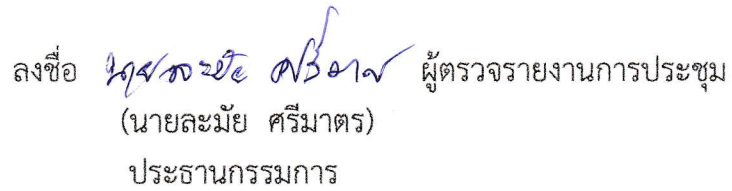 ลงชื่อ นายละมัย ศรีมาตร ผู้ตรวจรายงานการประชุม
(นายละมัย ศรีมาตร)
ประธานกรรมการ